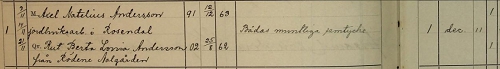 2/11 Axel Natelius Andersson 91 12/12 63 Bådas muntliga samtycke. 1 dec. 11
1 jordbruksarb. i Rosendal
21/11 Rut Berta Lovisa Andersson 02 25/8 62
från Rödene Nolgården